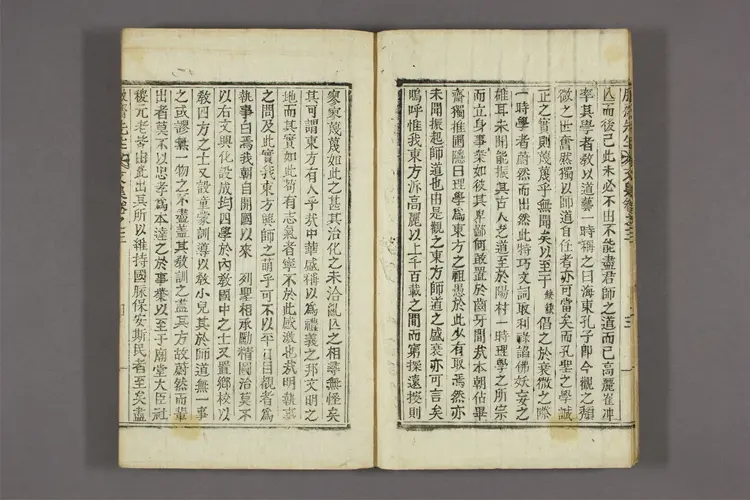 亾而後已此未必不由不能盡君師之道而已高麗崔冲
率其學者敎以道藝一時稱之曰海東孔子卽今觀之
微之世奮然獨以師道自任者亦可當矣而孔聖之學誠
正之實則蔑蔑乎無聞矣以至于 倡之於衰微之際
一時學者蔚然而出然此特巧文詞取利祿諂佛妖妄之
雄耳未聞能振其古人之道至於陽村一時理學之所宗
而立身事業如彼其卑鄙何敢置於齒牙間哉本朝佔畢
齋獨推圃隱曰理學爲東方之祖愚於此必有取焉然亦
未聞振起師道也由是觀之東方師道之盛衰亦可言矣
嗚呼惟我東方泝高麗以上千百載之間而窮探遠搜則
寥寥蔑蔑如此之甚其治化之未洽亂亾之相尋無怪矣
其可謂東方有人乎哉中華盛稱以爲禮義之邦文明之
地而其實如此苟有志氣者寧不於此感激也哉明執事
之問及此實我東方興師之萌乎可不以平日目覩者爲
執事白焉我朝自開國以來 列聖相承勵精圖治莫不
以右文興化設成均四學於內敎國中之士又置鄉校以
敎四方之士又設童蒙訓導以敎小兒其於師道無一事
之或謬無一物之不盡蓋其敎訓之盡其方故蔚然而輩
出者莫不以忠孝爲本達之於事業以至于廟堂大臣社
稷元老皆由此出其所以維持國脉保安斯民者至矣盡